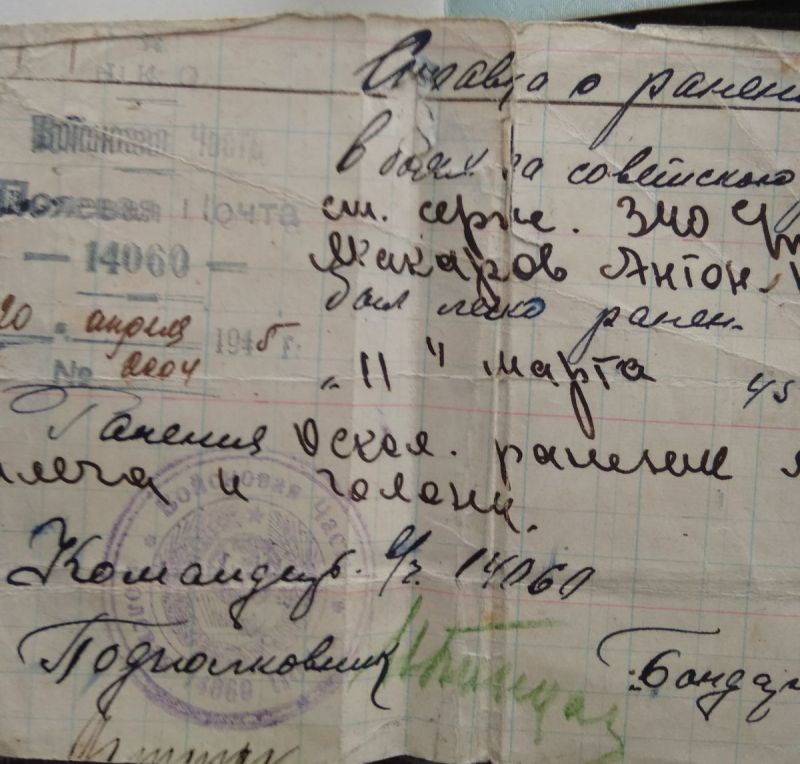 Справка о ранен
Войсковая Часть
в боях за советскую
Полевая Почта
ст. серж.
— 14060 —
Макаров Антон.
был легко ранен.
20 " апреля 1945 г.
№ 0004
" 11 " марта 45
Ранения Оскол. ранение
плеча и голени.
Войсковая Часть
Командир. в/ч. 14060
Подполковник
Бондар